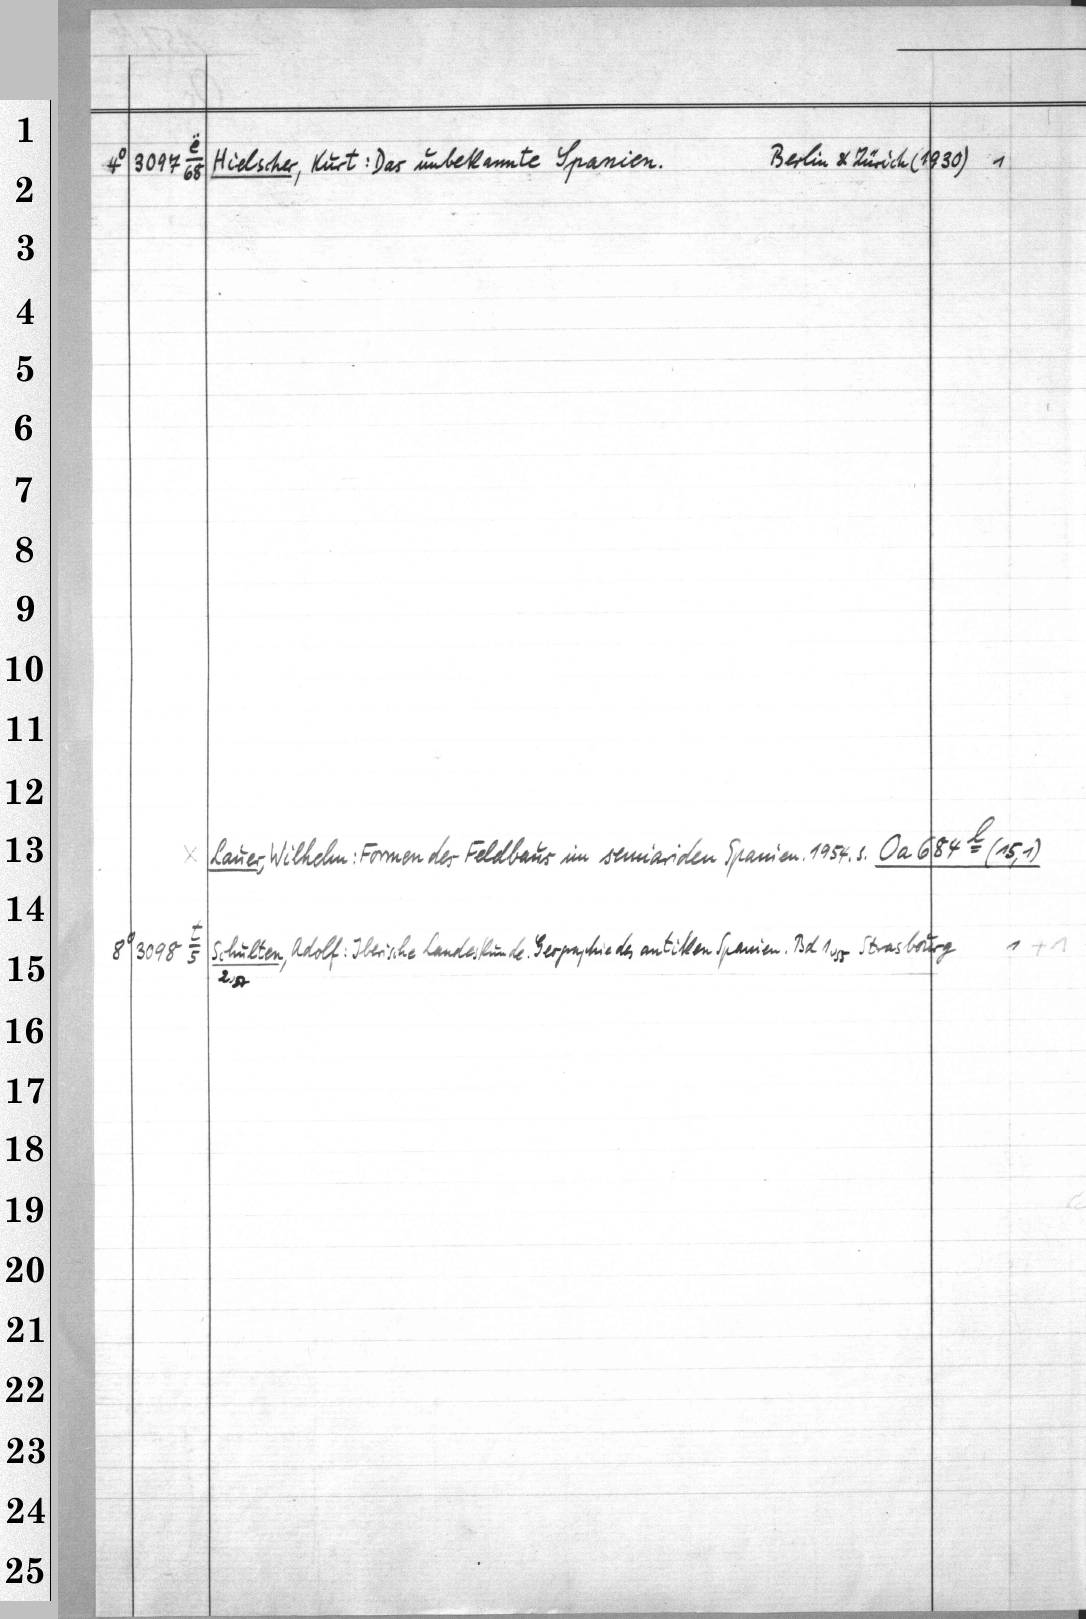 1
4° 3097 ë/68 Hielscher, Kurt: Das unbekannte Spanien. Berlin & Zürich (1930) 1
2
3
4
5
6
7
8
9
10
11
12
13 × Lauer, Wilhelm: Formen des Feldbaus im semiariden Spanien. 1954. s. Oa 684 l (15,1)
14
8° 3098 t/5 Schulten, Adolf: Iberische Landeskunde. Geographie des antiken Spanien. Bd 1 Strasbourg 1 + 1
15
16
17
18
19
20
21
22
23
24
25